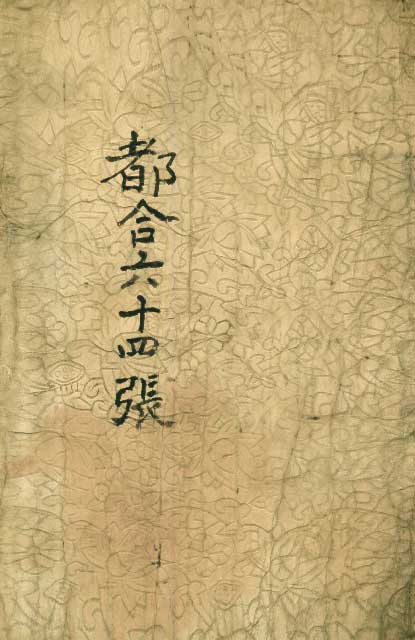 都合六十四張